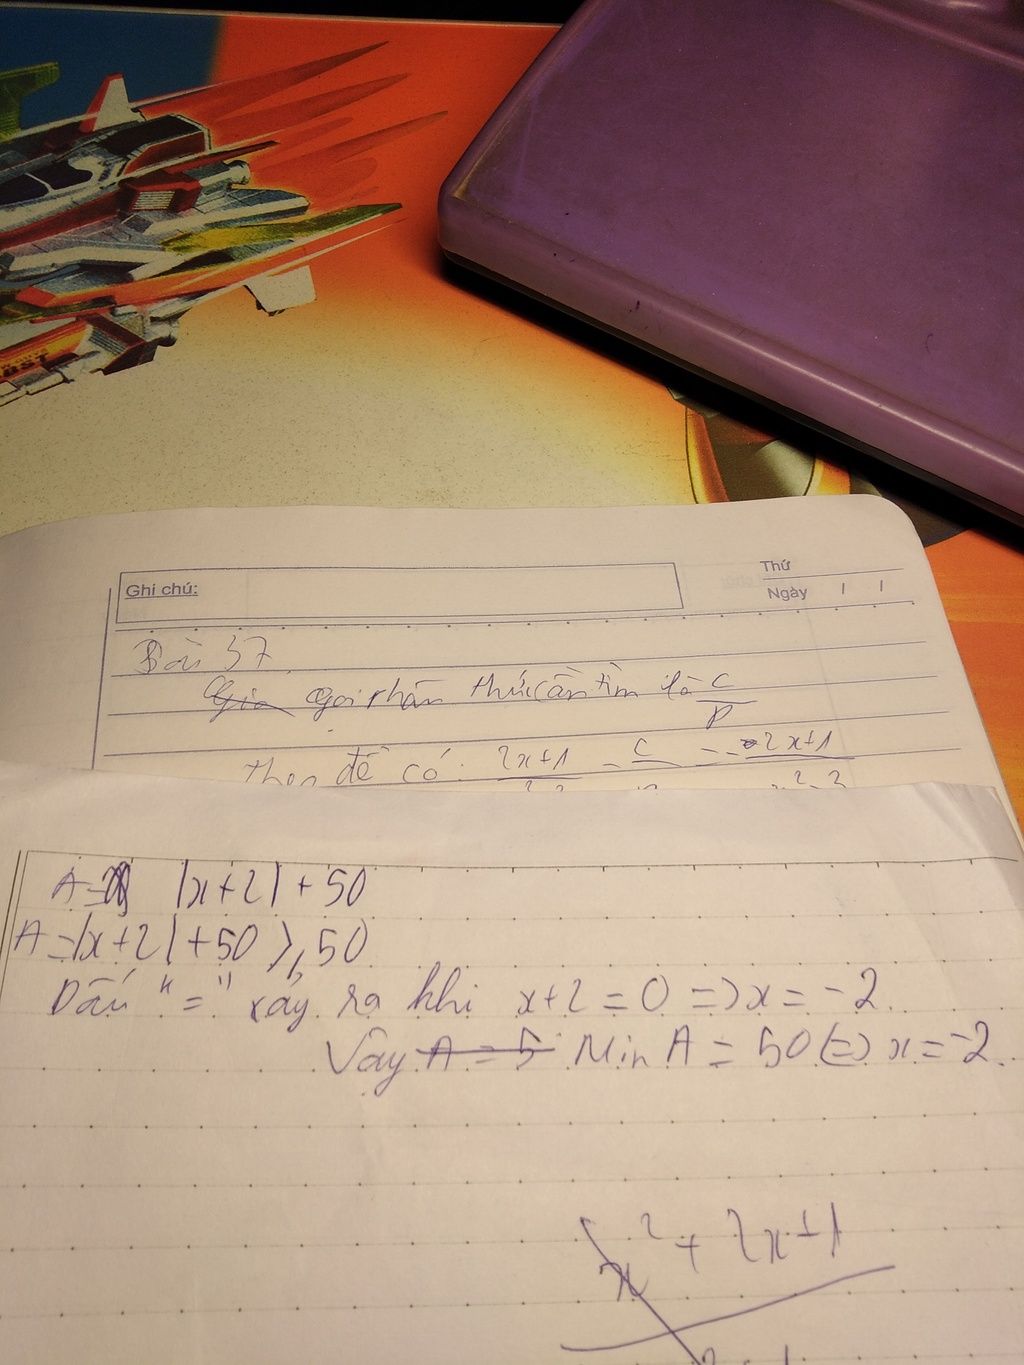 Ghi chú:
Thứ
Ngày / /
Bài 37
Gọi phân thức cần tìm là C/D
Theo đề có: 2x+1 - C = 2x+1
x²-3
A = |x+2| + 50
A = |x+2| + 50 ⩾ 50
Dấu "=" xảy ra khi x+2 = 0 => x = -2
Vậy A = 5 Min A = 50 <=> x = -2
x² + 2x+1